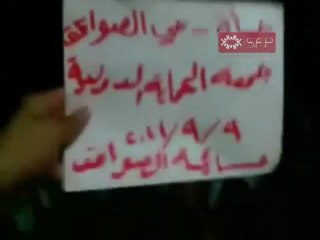 حماة - حي الصواعق
جمعة الحماية الدولية
٢٠١١/٩/٩
مسائية الصواعق